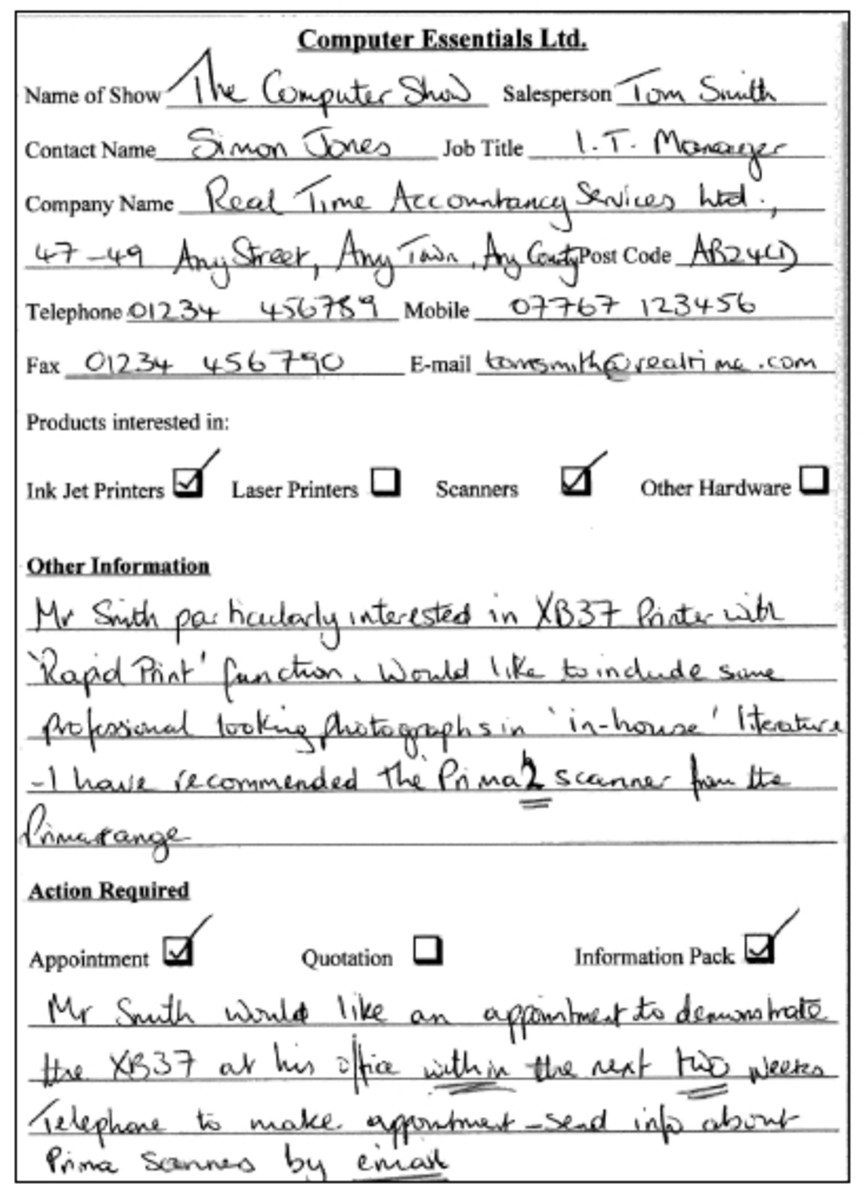 Computer Essentials Ltd.
Name of Show The Computer Show Salesperson Tom Smith
Contact Name Simon Jones Job Title I.T. Manager
Company Name Real Time Accountancy Services Ltd.,
47-49 Any Street, Any Town, Any County Post Code AB24
Telephone 01234 456789 Mobile 07767 123456
Fax 01234 456790 E-mail tomsmith@realtime.com
Products interested in:
Ink Jet Printers Laser Printers Scanners Other Hardware
Other Information
Mr Smith particularly interested in XB37 Printer with
'Rapid Print' function. Would like to include some
professional looking photographs in 'in-house' literature
- I have recommended the Prima 2 scanner from the
Prima range
Action Required
Appointment Quotation Information Pack
Mr Smith would like an appointment to demonstrate
the XB37 at his office within the next two weeks
Telephone to make appointment - send info about
Prima Scanners by email